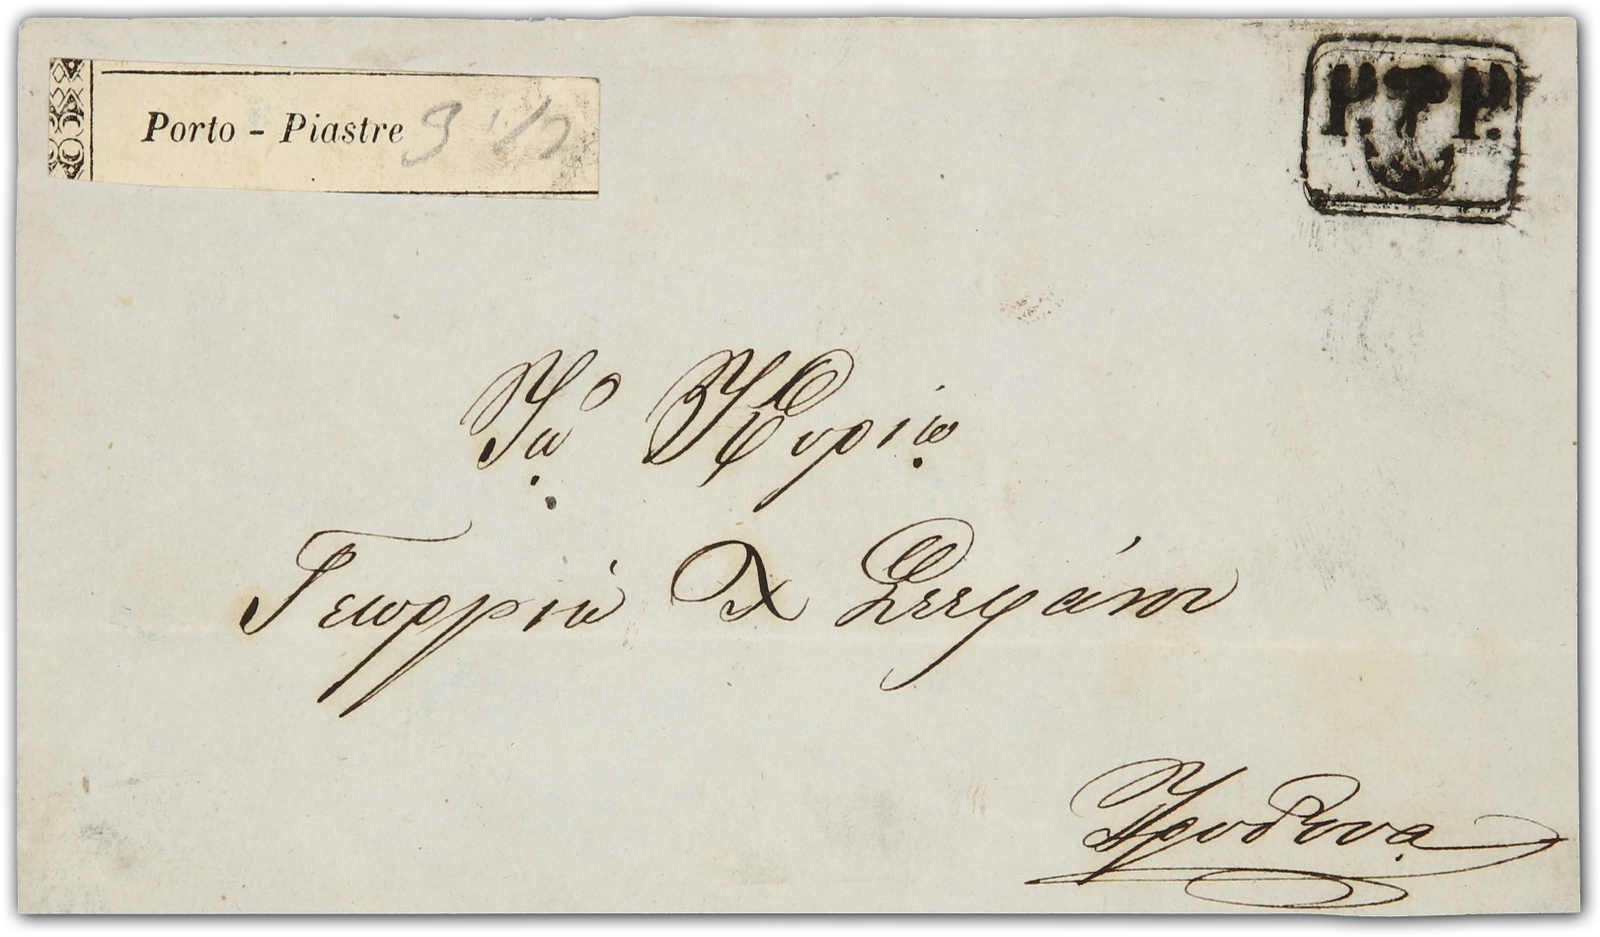 Porto - Piastre 3 1/2
P. P.
Τῷ Κυρίῳ
Γεωργίῳ Χ Στεφάνου